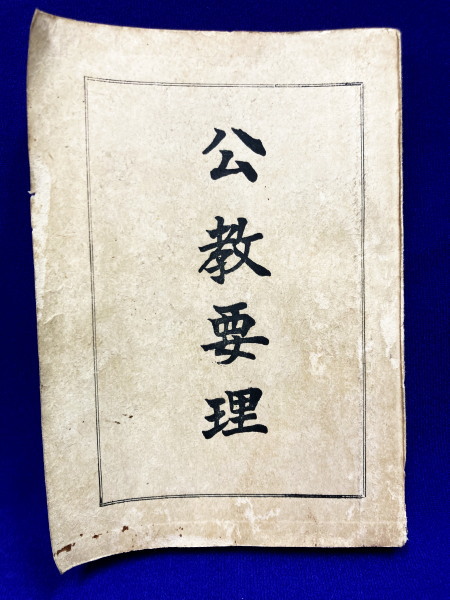 公教要理